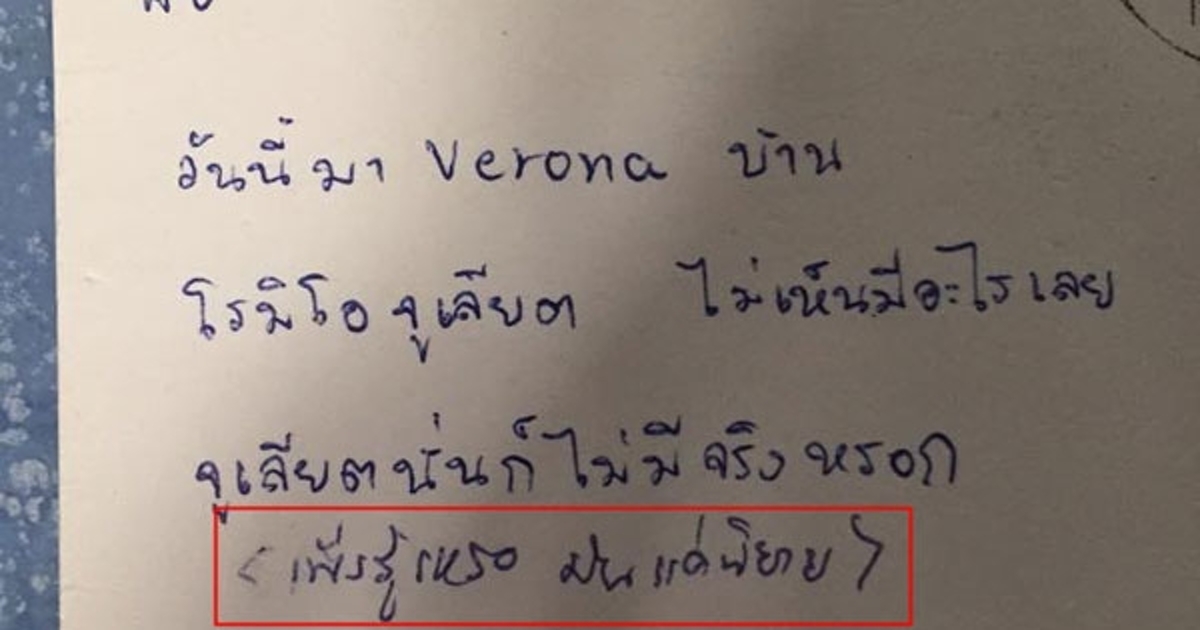 วันนี้มา Verona บ้าน
โรมิโอจูเลียต ไม่เห็นมีอะไรเลย
จูเลียตนั่นก็ไม่มีจริงหรอก
(เพิ่งรู้เหรอ มันแค่นิยาย)